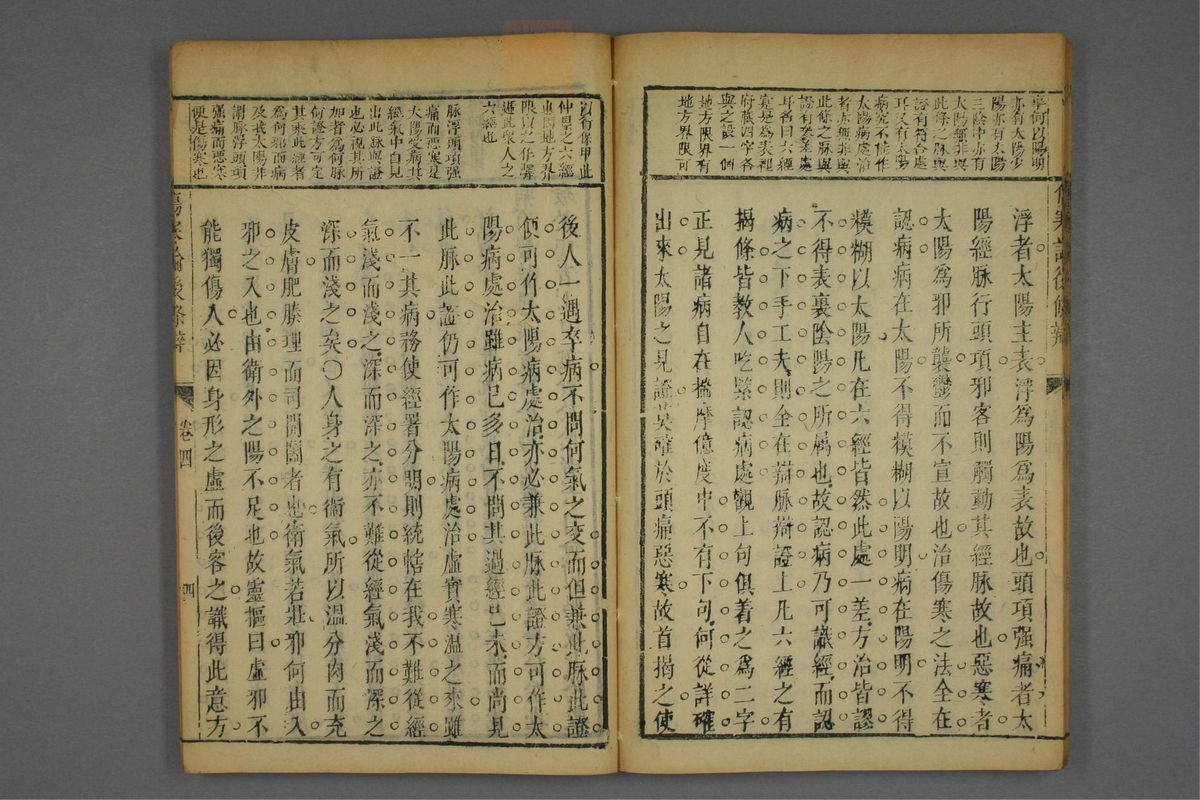 亭何以陽明
亦有太陽少
陽亦有太陽
三陰中亦有
太陽無非與
此條之脉與
證有符合處
耳又有太陽
病究不能作
太陽病處治
者亦無非與
此條之脉與
證有參差處
耳名曰六經
實是爲表裡
府藏四字各
與之設一個
地方界限有
地方界限可
浮者太陽主表浮爲陽爲表故也頭項强痛者太
陽經脉行頭項邪客則觸動其經脉故也惡寒者
太陽爲邪所襲鬱而不宣故也治傷寒之法全在
認病病在太陽不得糢糊以陽明病在陽明不得
糢糊以太陽凡在六經皆然此處一差方治皆謬
不得表裏陰陽之所属也故認病乃可識經而認
病之下手工夫則全在辯脉辯證上凡六經之有
揭條皆教人吃緊認病處觀上句俱着之爲二字
正見諸病自在揣摩億度中不有下句何從詳確
出來太陽之見證莫確於頭痛惡寒故首揭之使
傷寒論後條辯
以有條甲此
仲景之六經
也問地方界
限以之作聲
述此衆人之
六經也
脉浮頭項强
痛而惡寒是
太陽受病其
經氣中自見
出此脉與證
也必視其所
加者爲何脉
何證方可定
其乘此經者
爲何邪而病
及我太陽非
謂脉浮頭項
强痛而惡寒
便是傷寒也
後人一遇卒病不問何氣之交而但兼此脉此證
便可作太陽病處治亦必兼此脉此證方可作太
陽病處治雖病已多日不問其過經已未而尚見
此脉此證仍可作太陽病處治虛實寒溫之來雖
不一其病務使經署分明則統轄在我不難從經
氣淺而淺之深而深之亦不難從經氣淺而深之
深而淺之矣〇人身之有衛氣所以溫分肉而充
皮膚肥腠理而司開闔者也衛氣若壯邪何由入
邪之入也由衛外之陽不足也故靈樞曰虛邪不
能獨傷人必因身形之虛而後客之識得此意方
傷寒論後條辯
卷四
四